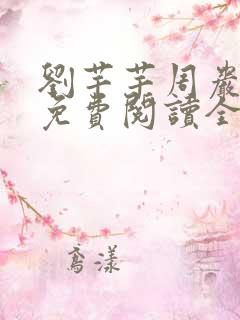 劉芊芊周嚴
免費閱讀全
喬漾